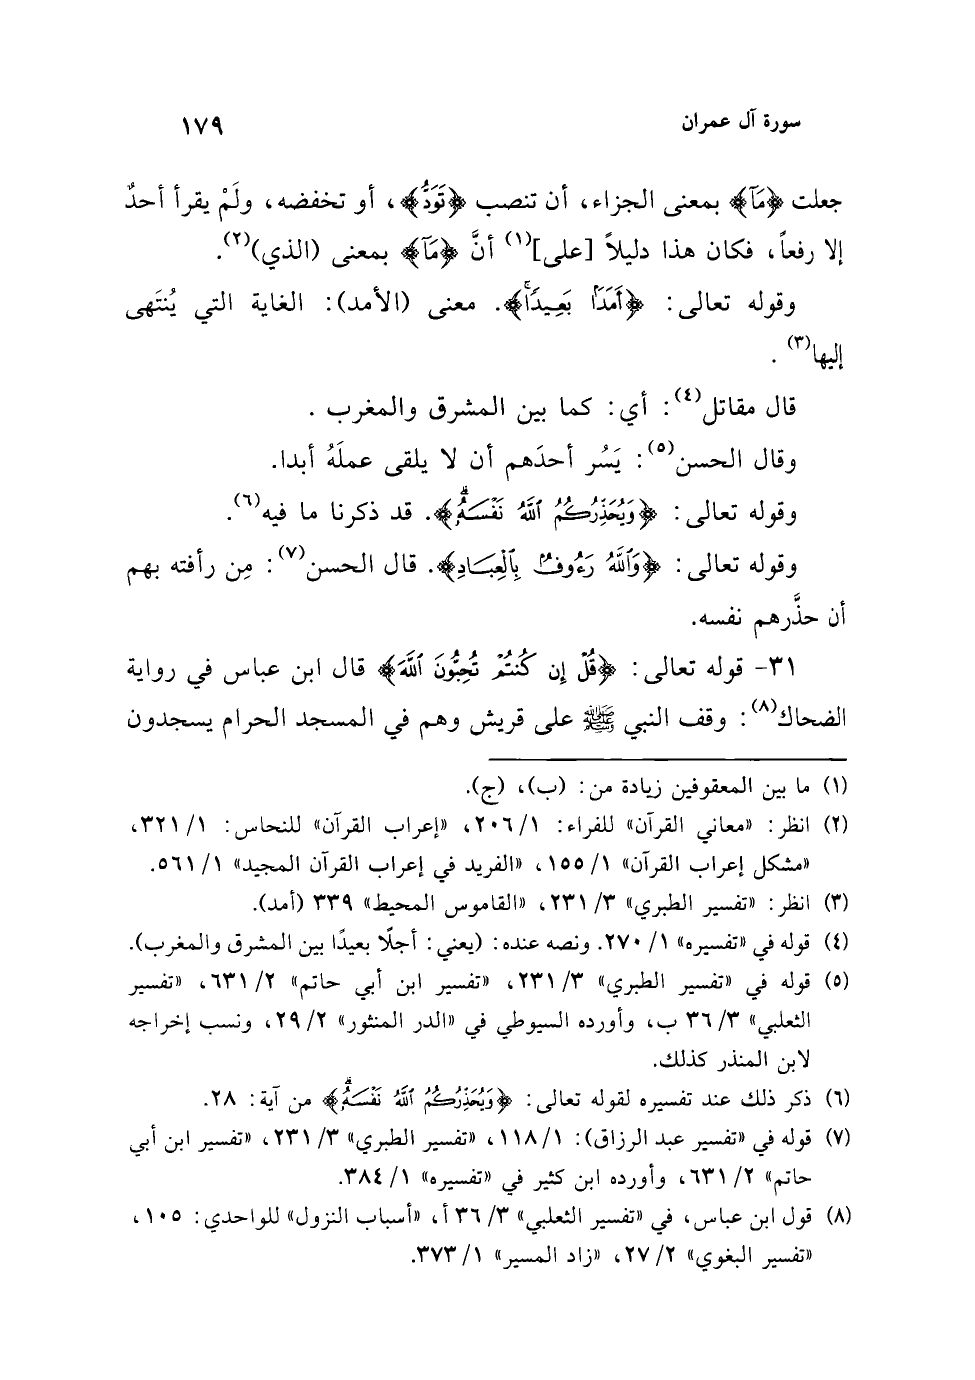 سورة آل عمران ١٧٩
جعلت ﴿مَآ﴾ بمعنى الجزاء، أن تنصب ﴿تَوَدُّ﴾، أو تخفضه، ولَمْ يقرأ أحدٌ
إلا رفعاً، فكان هذا دليلاً [على](١) أنَّ ﴿مَآ﴾ بمعنى (الذي)(٢).
وقوله تعالى: ﴿أَمَدَۢا بَعِيدٗاۗ﴾. معنى (الأمد): الغاية التي يُنتَهى
إليها(٣) .
قال مقاتل(٤): أي: كما بين المشرق والمغرب .
وقال الحسن(٥): يَسُر أحدَهم أن لا يلقى عملَهُ أبدا.
وقوله تعالى: ﴿وَيُحَذِّرُكُمُ ٱللَّهُ نَفۡسَهُۥۗ﴾. قد ذكرنا ما فيه(٦).
وقوله تعالى: ﴿وَٱللَّهُ رَءُوفُۢ بِٱلۡعِبَادِ﴾. قال الحسن(٧): مِن رأفته بهم
أن حذَّرهم نفسه.
٣١- قوله تعالى: ﴿قُلۡ إِن كُنتُمۡ تُحِبُّونَ ٱللَّهَ﴾ قال ابن عباس في رواية
الضحاك(٨): وقف النبي ﷺ على قريش وهم في المسجد الحرام يسجدون
(١) ما بين المعقوفين زيادة من: (ب)، (ج).
(٢) انظر: «معاني القرآن» للفراء: ١/ ٢٠٦، «إعراب القرآن» للنحاس: ١/ ٣٢١،
«مشكل إعراب القرآن» ١/ ١٥٥، «الفريد في إعراب القرآن المجيد» ١/ ٥٦١.
(٣) انظر: «تفسير الطبري» ٣/ ٢٣١، «القاموس المحيط» ٣٣٩ (أمد).
(٤) قوله في «تفسيره» ١/ ٢٧٠. ونصه عنده: (يعني: أجلًا بعيدًا بين المشرق والمغرب).
(٥) قوله في «تفسير الطبري» ٣/ ٢٣١، «تفسير ابن أبي حاتم» ٢/ ٦٣١، «تفسير
الثعلبي» ٣/ ٣٦ ب، وأورده السيوطي في «الدر المنثور» ٢/ ٢٩، ونسب إخراجه
لابن المنذر كذلك.
(٦) ذكر ذلك عند تفسيره لقوله تعالى: ﴿وَيُحَذِّرُكُمُ ٱللَّهُ نَفۡسَهُۥۗ﴾ من آية: ٢٨.
(٧) قوله في «تفسير عبد الرزاق): ١/ ١١٨، «تفسير الطبري» ٣/ ٢٣١، «تفسير ابن أبي
حاتم» ٢/ ٦٣١، وأورده ابن كثير في «تفسيره» ١/ ٣٨٤.
(٨) قول ابن عباس، في «تفسير الثعلبي» ٣/ ٣٦ أ، «أسباب النزول» للواحدي: ١٠٥،
«تفسير البغوي» ٢/ ٢٧، «زاد المسير» ١/ ٣٧٣.